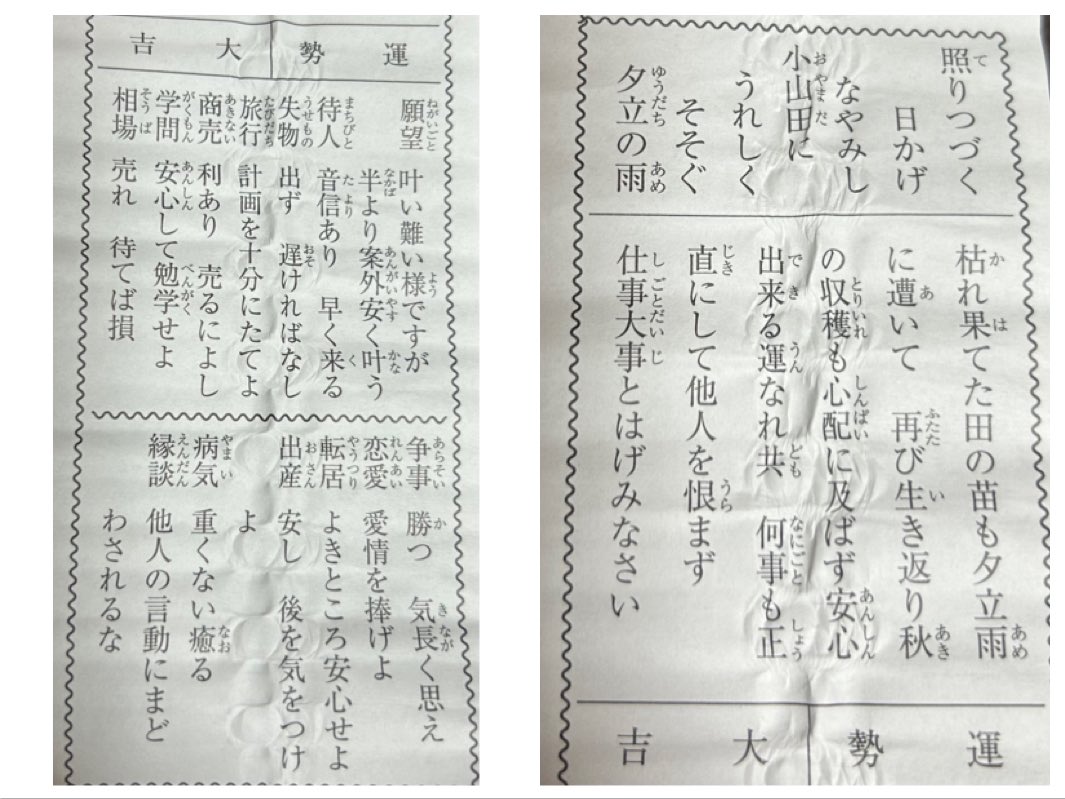 照りつづく
日かげ
なやみし
小山田に
うれしく
そそぐ
夕立の雨
枯れ果てた田の苗も夕立雨
に遭いて 再び生き返り秋
の収穫も心配に及ばず安心
出来る運なれ共 何事も正
直にして他人を恨まず
仕事大事とはげみなさい
運勢 大吉
運勢 大吉
願望 叶い難い様ですが
半より案外安く叶う
待人 音信あり 早く来る
失物 出ず 遅ければなし
旅行 計画を十分にたてよ
商売 利あり 売るによし
学問 安心して勉学せよ
相場 売れ 待てば損
争事 勝つ 気長く思え
恋愛 愛情を捧げよ
転居 よきところ安心せよ
出産 安し 後を気をつけ
よ
病気 重くない癒る
縁談 他人の言動にまど
わされるな